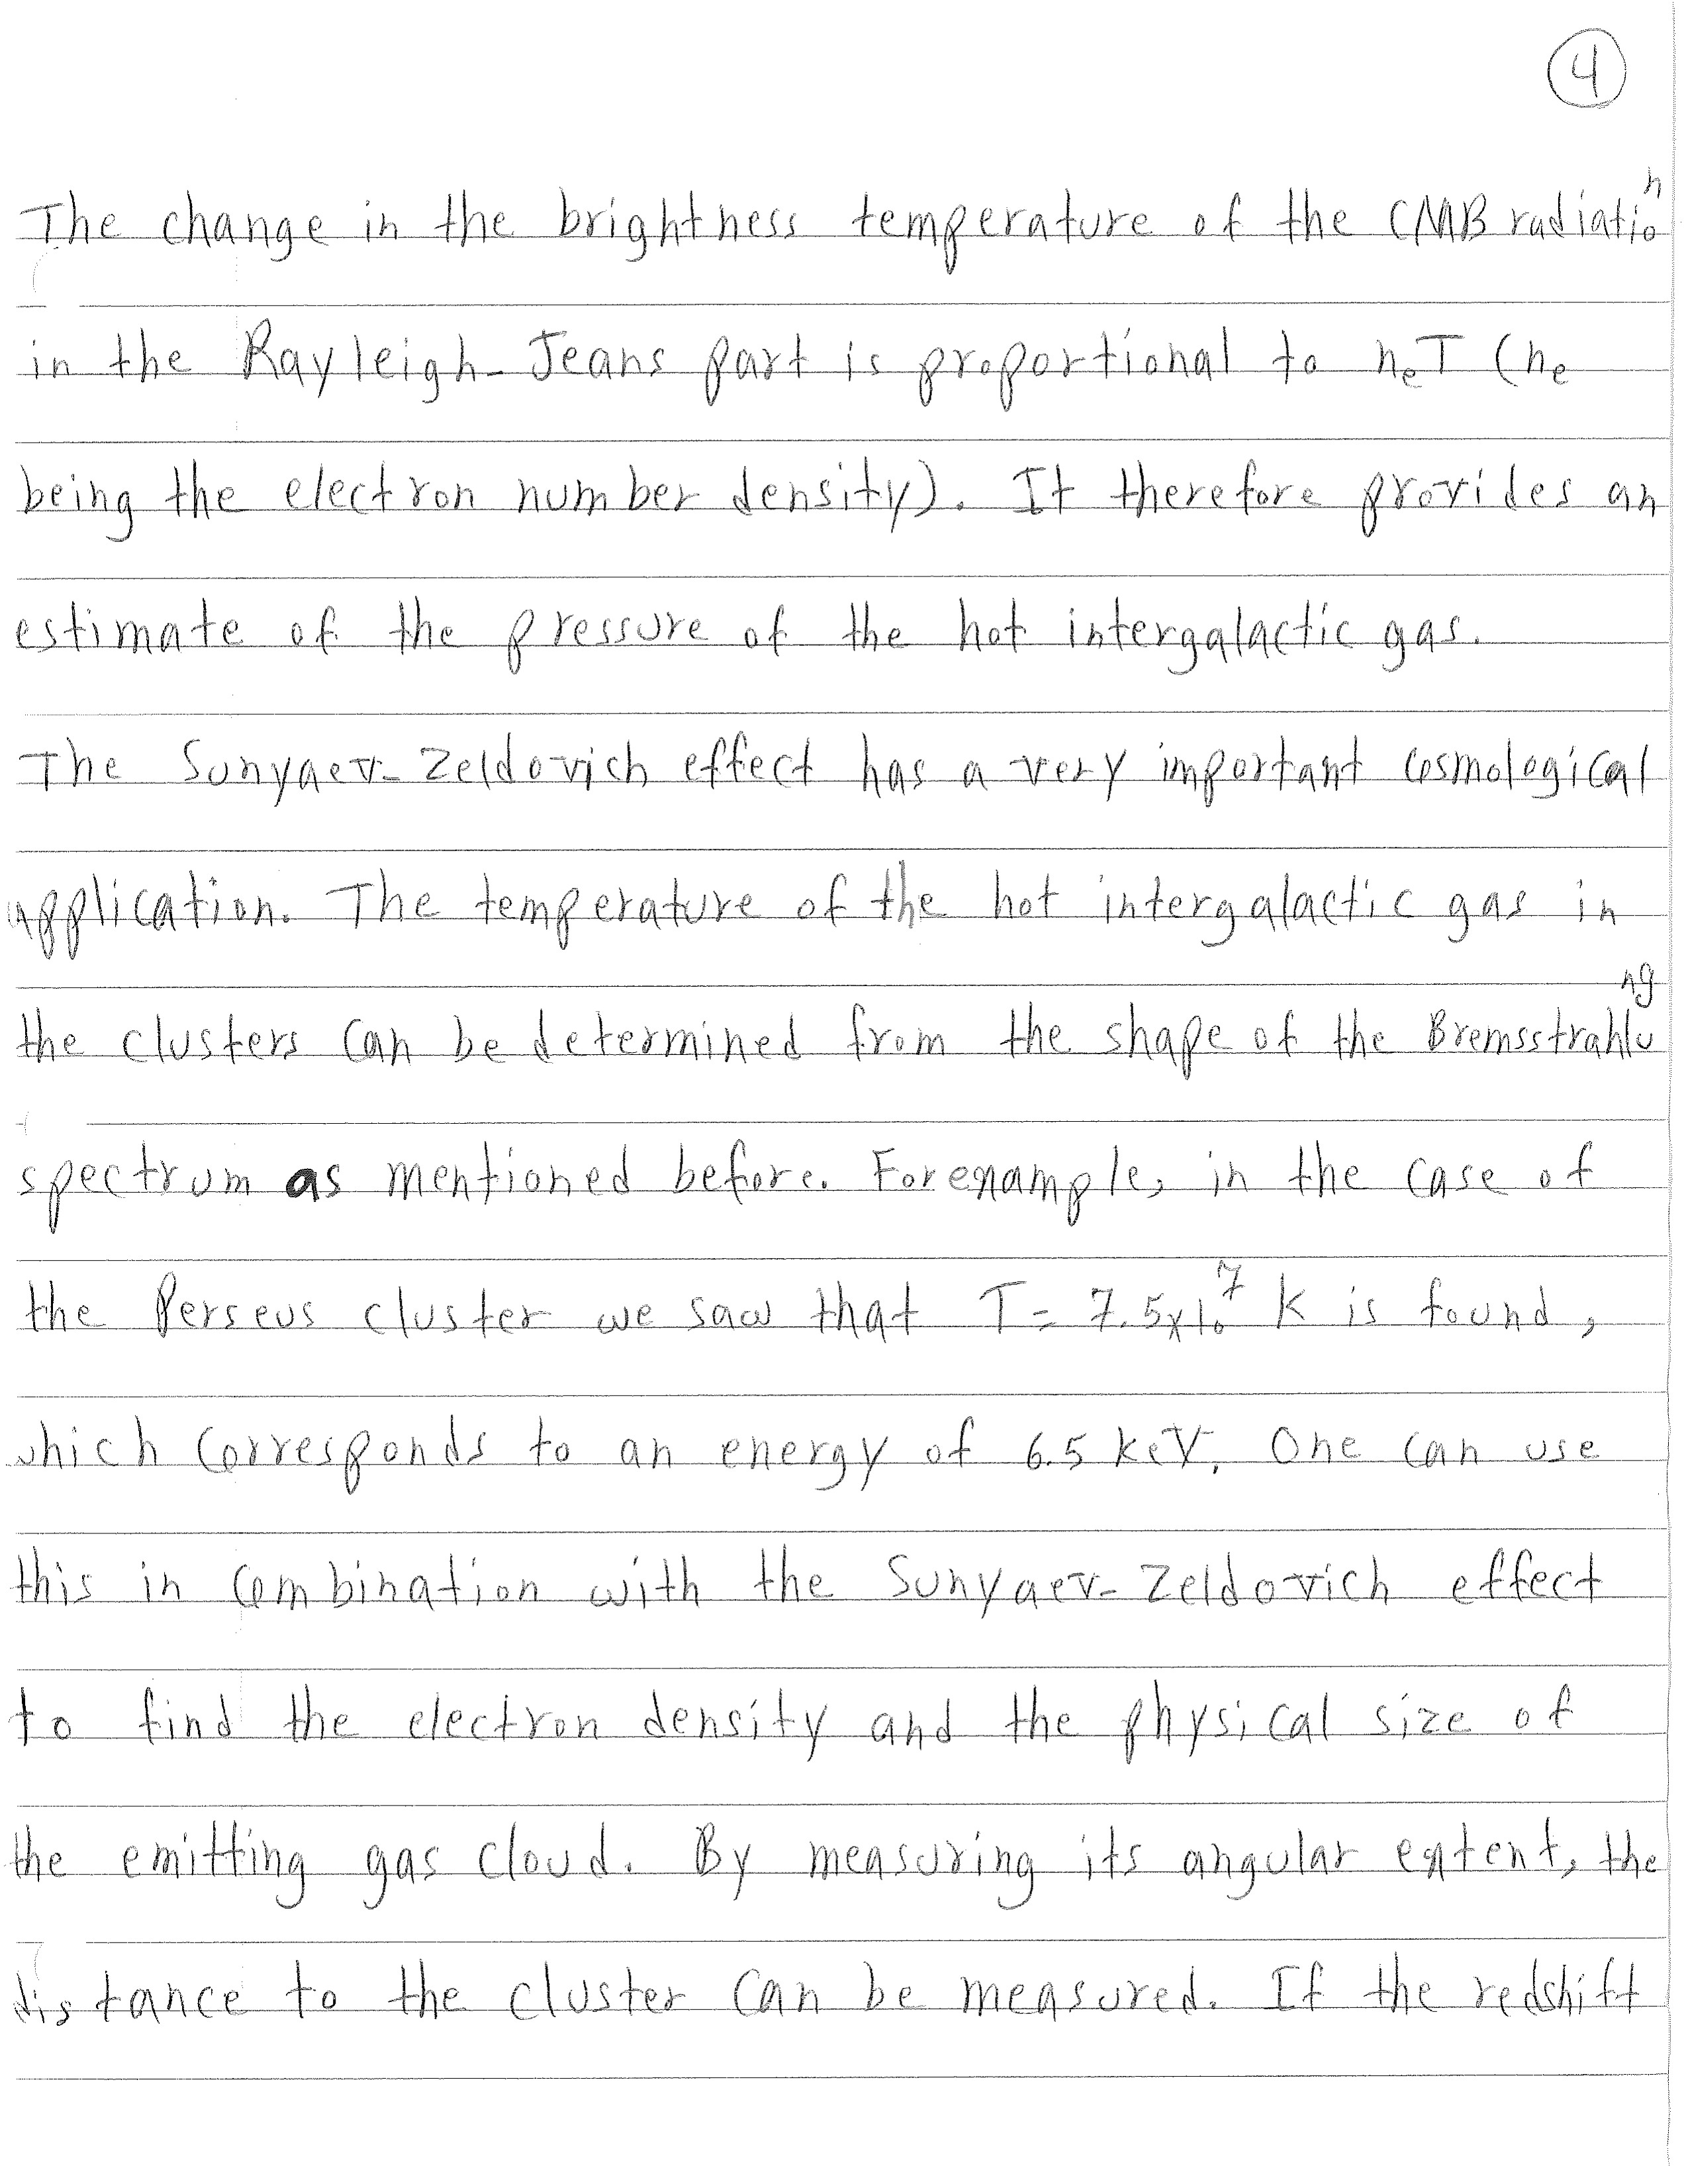 4
The change in the brightness temperature of the CMB radiation
in the Rayleigh-Jeans part is proportional to nₑT (nₑ
being the electron number density). It therefore provides an
estimate of the pressure of the hot intergalactic gas.
The Sunyaev-Zeldovich effect has a very important cosmological
application. The temperature of the hot intergalactic gas in
the clusters can be determined from the shape of the Bremsstrahlung
spectrum as mentioned before. For example, in the case of
the Perseus cluster we saw that T = 7.5x10⁷ K is found,
which corresponds to an energy of 6.5 keV. One can use
this in combination with the Sunyaev-Zeldovich effect
to find the electron density and the physical size of
the emitting gas cloud. By measuring its angular extent, the
distance to the cluster can be measured. If the redshift